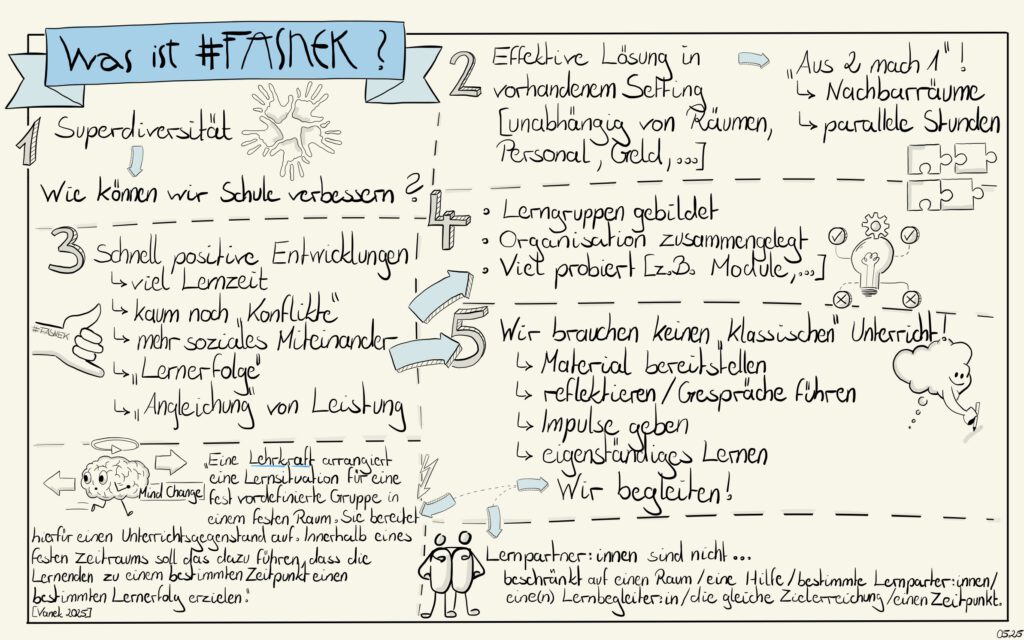 Was ist #FASNEK ?
1 Superdiversität
Wie können wir Schule verbessern?
2 Effektive Lösung in
vorhandenem Setting
[unabhängig von Räumen,
Personal, Geld,...]
„Aus 2 mach 1"!
↳ Nachbarräume
↳ parallele Stunden
3 Schnell positive Entwicklungen
↳ viel Lernzeit
↳ kaum noch „Konflikte"
↳ mehr soziales Miteinander
↳ „Lernerfolge"
↳ „Angleichung" von Leistung
#FASNEK
4
• Lerngruppen gebildet
• Organisation zusammengelegt
• Viel probiert [z.B. Module,...]
5 Wir brauchen keinen „klassischen" Unterricht!
↳ Material bereitstellen
↳ reflektieren/Gespräche führen
↳ Impulse geben
↳ eigenständiges Lernen
Wir begleiten!
Mind Change
„Eine Lehrkraft arrangiert
eine Lernsituation für eine
fest vordefinierte Gruppe in
einem festen Raum. Sie bereitet
hierfür einen Unterrichtsgegenstand auf. Innerhalb eines
festen Zeitraums soll das dazu führen, dass die
Lernenden zu einem bestimmten Zeitpunkt einen
bestimmten Lernerfolg erzielen."
[Vanek 2025]
Lernpartner:innen sind nicht...
beschränkt auf einen Raum/eine Hilfe/bestimmte Lernparter:innen/
eine(n) Lernbegleiter:in/die gleiche Zielerreichung/einen Zeitpunkt.
0525